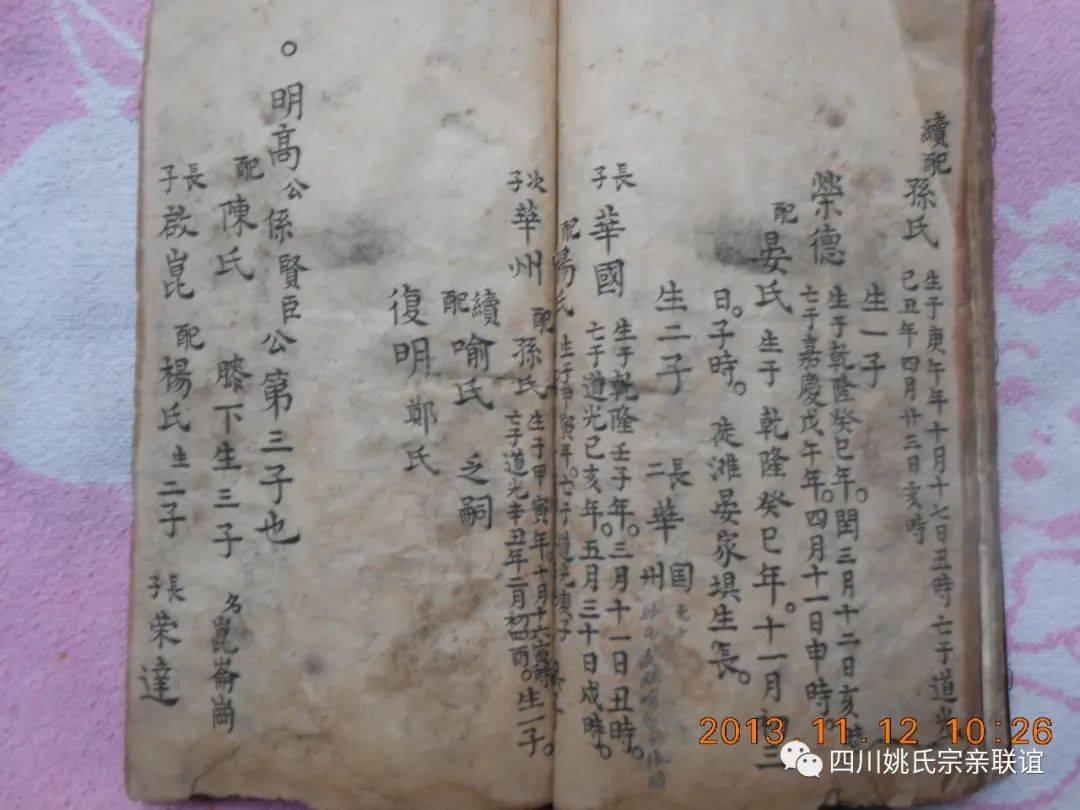 續配孫氏 生于庚午年十月十七日丑時亡于道光
己丑年四月廿三日亥時
生一子
榮德 生于乾隆癸巳年。閏三月十二日亥時
亡于嘉慶戊午年。四月十一日申時。
配晏氏 生于乾隆癸巳年。十一月初三
日。子時。 徒灘晏家塤生長。
生二子 長華国
二華州
長子華國 生于乾隆壬子年。三月十一日丑時。
亡于道光己亥年。五月三十日戍時。
配楊氏 生于甲寅年。亡于道光
次子華州 配孫氏 生于甲寅年。十月十六寅時
亡于道光辛丑年二月初酉。生一子。
續配喻氏 乏嗣
復明鄭氏
。明高公係賢臣公第三子也
配陳氏 膝下生三子 名崑崙崗
長子啟崑 配楊氏生二子 長子荣達
2013.11.12 10:26
四川姚氏宗亲联谊